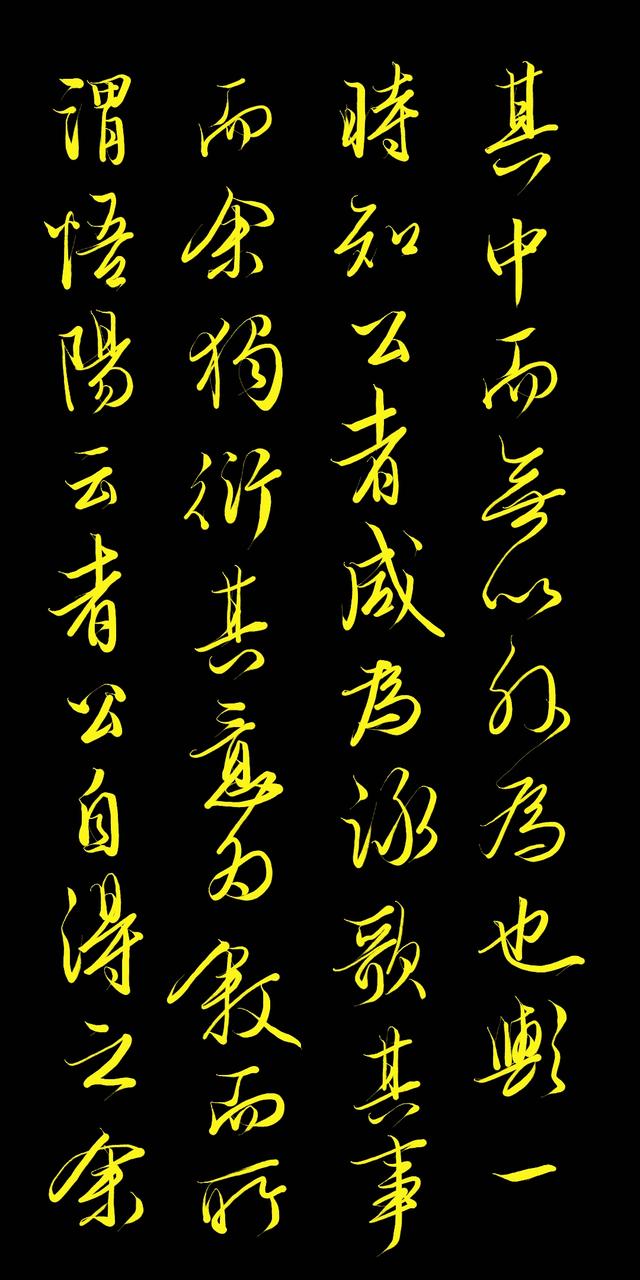 其中而無以外為也歟一
時知公者咸為詠歌其事
而余獨衍其意為敘而所
謂悟陽云者公自得之余